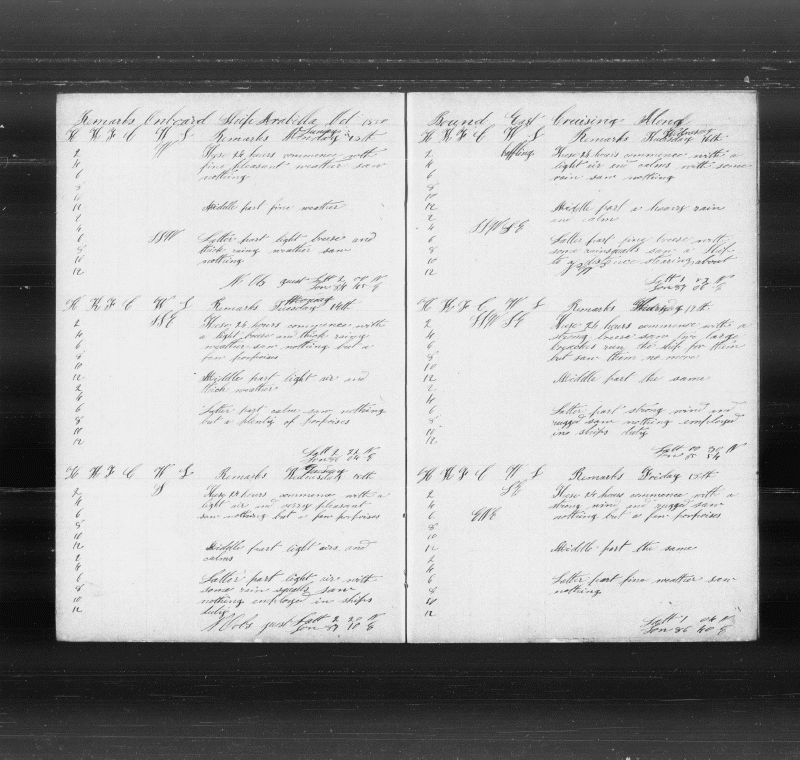 Remarks Onboard Ship Arabella Oct
H K F C W L Remarks Sunday 13th
2 W These 24 hours commence with
4 fine pleasant weather saw
6 nothing
8
10
12 Middle part fine weather
2
4
6 SSW Latter part light breese and
8 thick rainy weather saw
10 nothing
12
Latt 2 00 N
Lon 84 45 E
H K F C W L Remarks Tuesday Monday 14th
2 SSE These 24 hours commence with
4 a light breese and thick rainy
6 weather saw nothing but a
8 few porpoises
10
12 Middle part light air and
2 thick weather
4
6 Latter part calm saw nothing
8 but a plenty of porpoises
10
12
Latt 2 22 N
Lon E
H K F C W L Remarks Wednesday Tuesday 15th
2 S These 24 hours commence with a
4 light air and verry pleasant
6 saw nothing but a few porpoises
8
10
12 Middle part light airs and
2 calms
4
6 Latter part light air with
8 some rain squals saw
10 nothing employed in ships
12 duty
Latt 2 20 N
Lon 87 10 E
Bound East Cruising Along
H K F C W L Remarks Thursday Wednesday 16th
2 baffling These 24 hours commence with a
4 light air and calms with some
6 rain saw nothing
8
10
12 Middle part a heavy rain
2 and calm
4 SSW SE
6 Latter part fine breese with
8 some rainsqualls saw a Ship
10 to a distance stearing about
12
Latt 1 N
Lon 87 00 E
H K F C W L Remarks Thursday 17th
2 SSW SE These 24 hours commence with a
4 strong breese saw two large
6 the ship for them
8 but saw them no more
10
12 Middle part the same
2
4
6 Latter part strong wind and
8 rugged saw nothing employed
10 in ships duty
12
Latt 00 30 N
Lon
H K F C W L Remarks Friday 18th
2 SE These 24 hours commence with a
4 strong wind and rugged saw
6 ENE nothing but a few porpoises
8
10
12 Middle part the same
2
4
6 Latter part fine weather saw
8 nothing
10
12
Latt 1 04 N
Lon 86 40 E